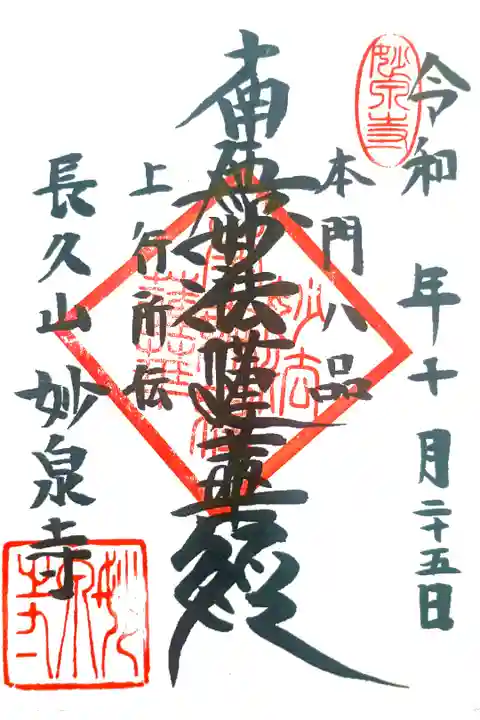 妙泉寺
令和 年十月二十五日
本門八品
南無妙法蓮華経
上行所伝
長久山 妙泉寺
妙法
妙泉寺